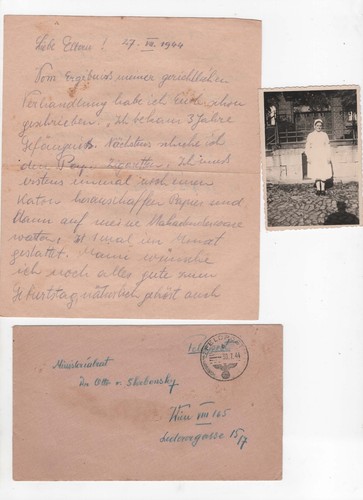 Liebe Eltern! 27. VII. 1944
Vom Ergebnis meiner gerichtlichen
Verhandlung habe ich Euch schon
geschrieben. Ich bekam 3 Jahre
Gefängnis. Nächstens schicke ich
den Ich muß
erstens einmal noch einen
Karton Papier und
dann auf meine
warten, ist 1 mal im Monat
gestattet. Mami wünsche
ich noch alles gute zum
Geburtstag natürlich gehört auch
Feldpost
FELDPOST
28.7.44
Ministerialrat
Dr Otto v. Skrbensky
Wien VIII 165
Lederergasse